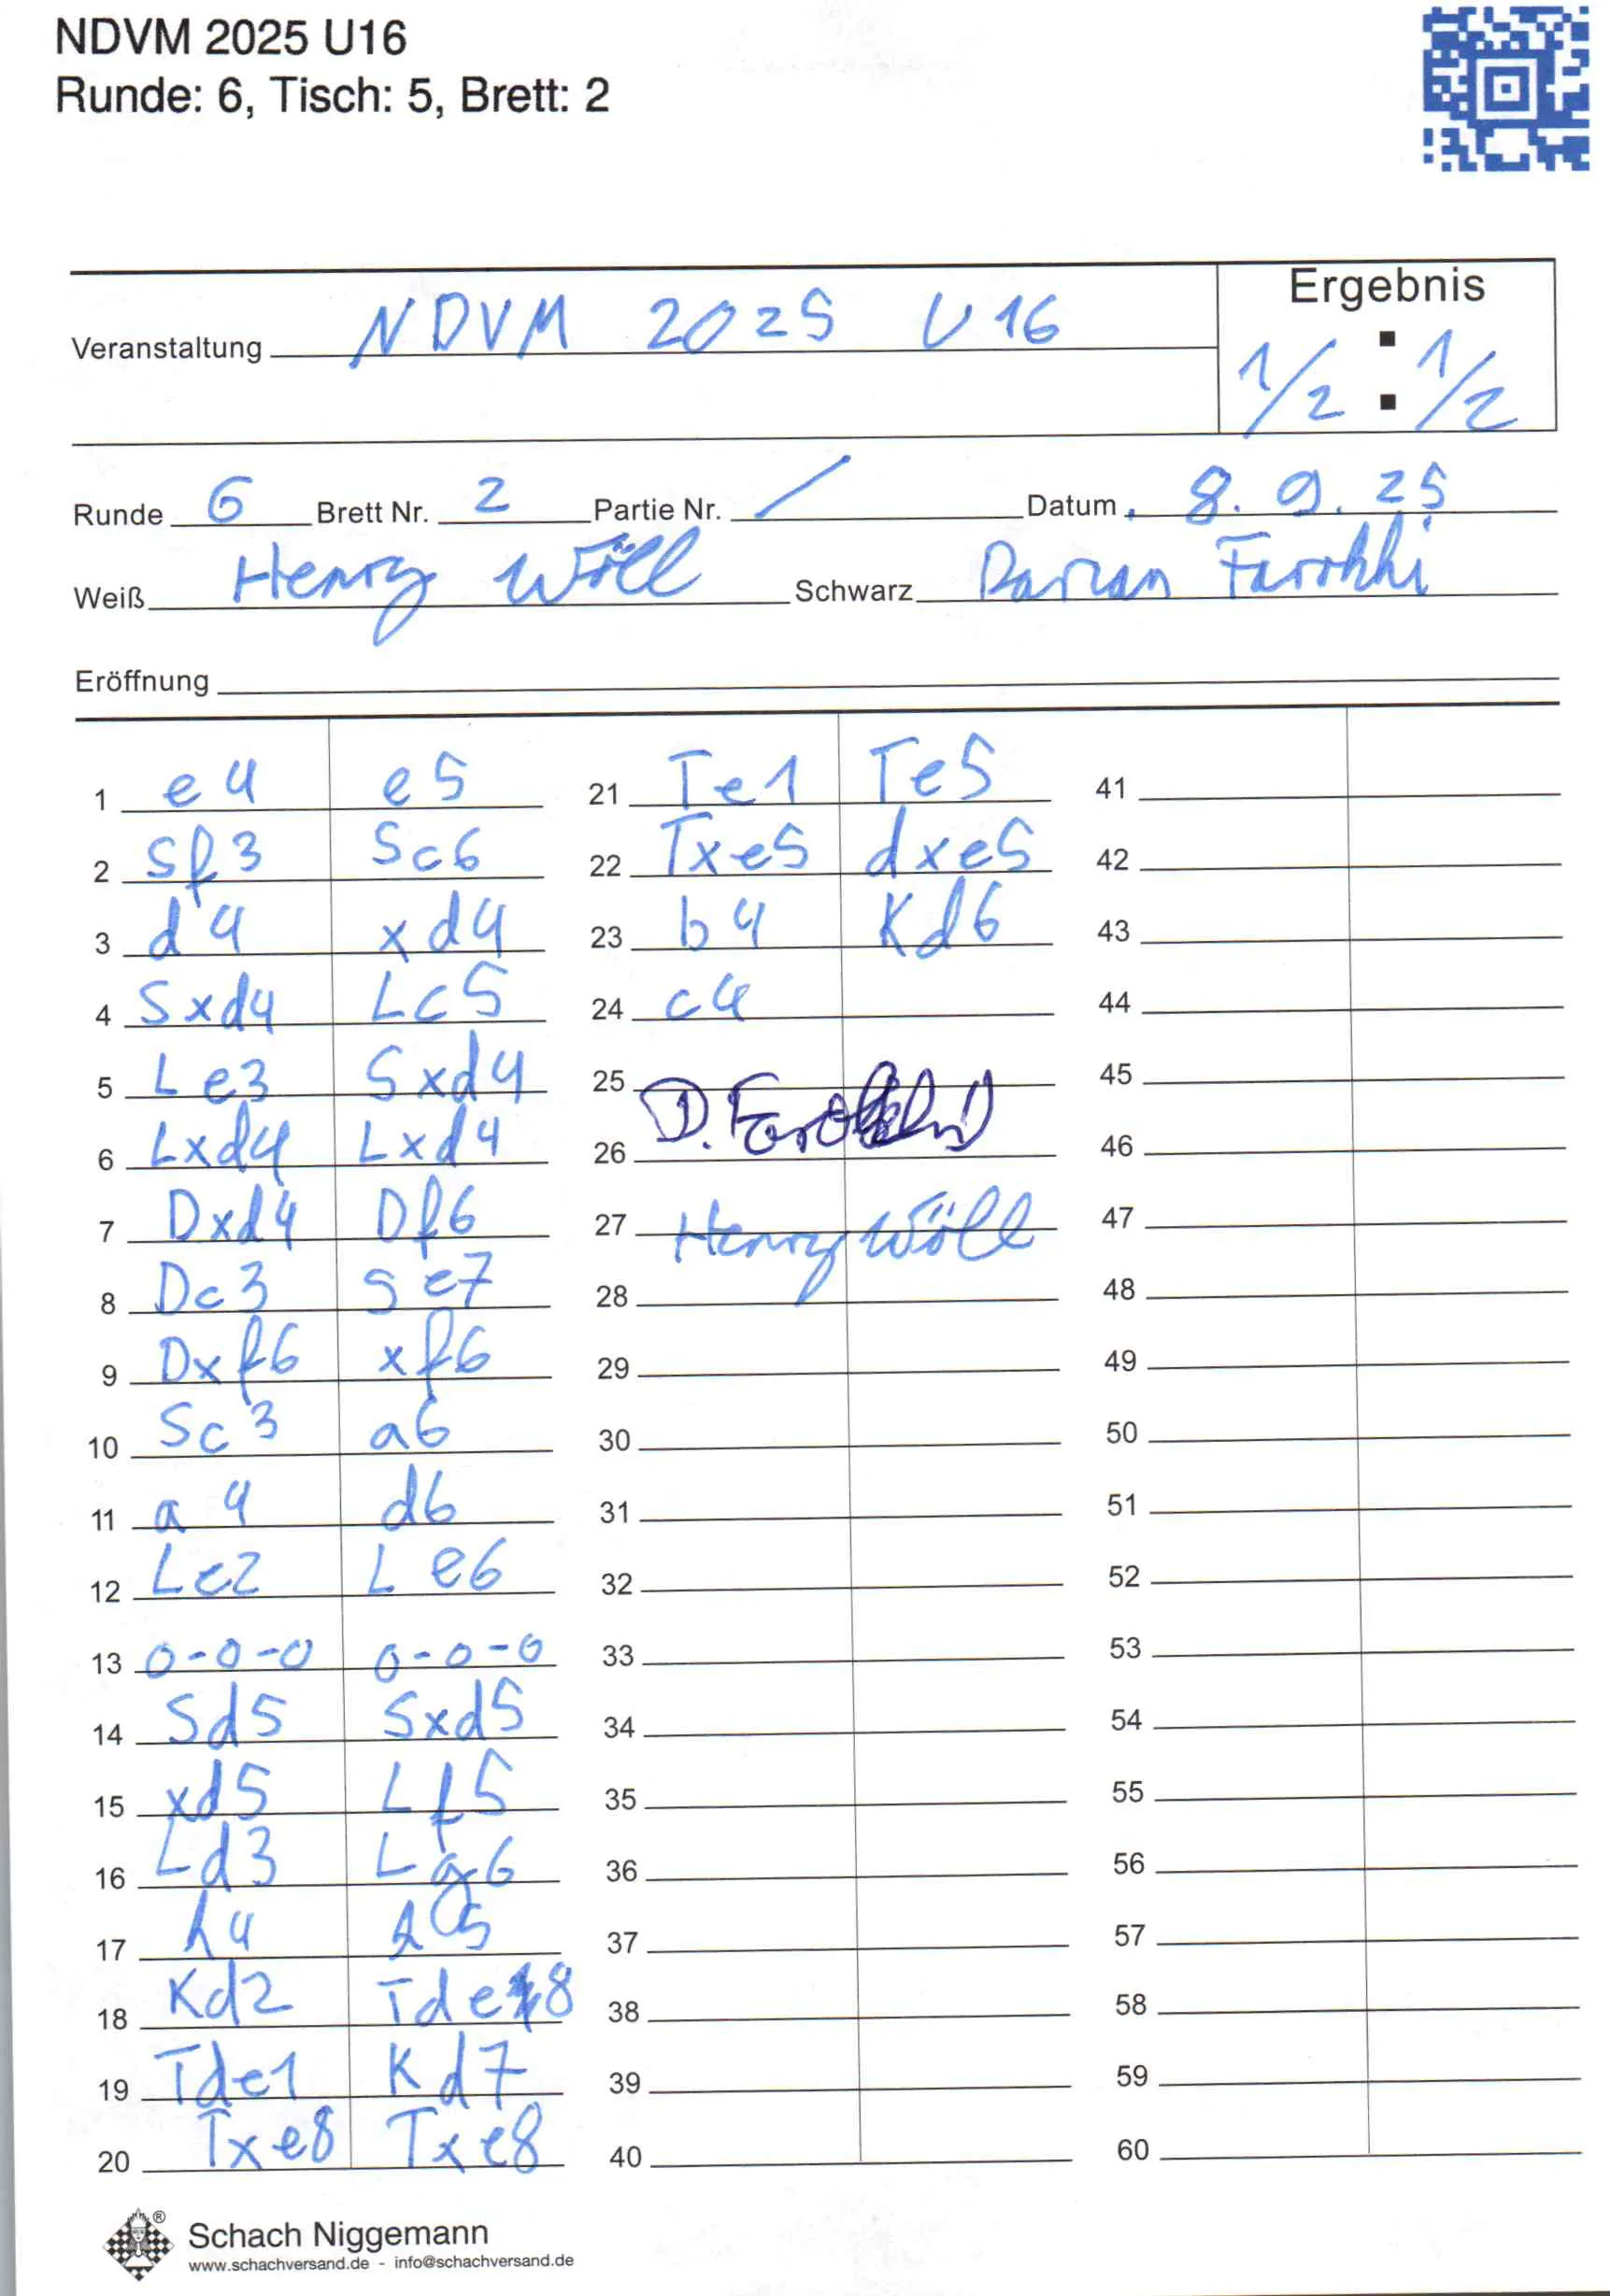 NDVM 2025 U16
Runde: 6, Tisch: 5, Brett: 2
Ergebnis
Veranstaltung NDVM 2025 U16
1/2 : 1/2
Runde 6 Brett Nr. 2 Partie Nr. / Datum 8.9.25
Weiß Henry Wöll Schwarz Darian Farokhi
Eröffnung
1 e4 e5 21 Te1 Te5 41
2 Sf3 Sc6 22 Txe5 dxe5 42
3 d4 xd4 23 b4 Kd6 43
4 Sxd4 Lc5 24 c4 44
5 Le3 Sxd4 25 45
6 Lxd4 Lxd4 26 D. Farokhi 46
7 Dxd4 Df6 27 Henry Wöll 47
8 Dc3 Se7 28 48
9 Dxf6 xf6 29 49
10 Sc3 a6 30 50
11 a4 d6 31 51
12 Le2 Le6 32 52
13 0-0-0 0-0-0 33 53
14 Sd5 Sxd5 34 54
15 xd5 Lf5 35 55
16 Ld3 Lg6 36 56
17 h4 h5 37 57
18 Kd2 Tde8 38 58
19 Tde1 Kd7 39 59
20 Txe8 Txe8 40 60
Schach Niggemann
www.schachversand.de - info@schachversand.de